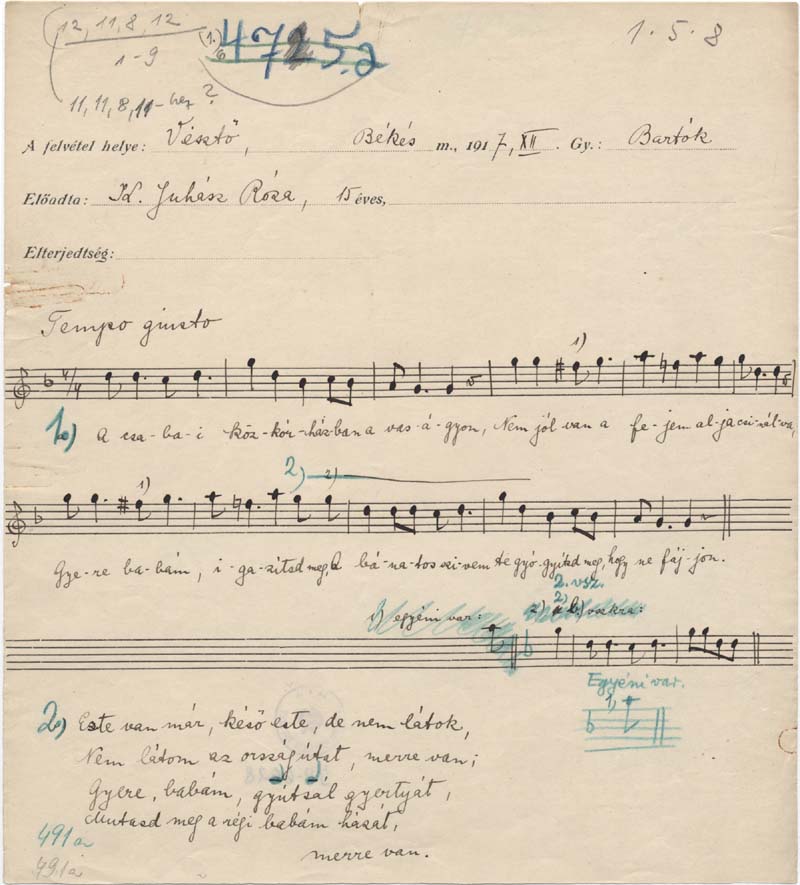 12, 11, 8, 12
1-9
11, 11, 8, 11-hez?
4725.a
1. 5. 8
A felvétel helye: Vésztő, Békés m., 1917, XII. Gy.: Bartók
Előadta: K. Juhász Róza, 15 éves,
Elterjedtség:
Tempo giusto
4/4 1)
1.) A csa-ba-i köz-kór-házban a vas-á-gyon, Nem jól van a fe-jem al-ja csi-nál-va,
1) 2) 2)
Gye-re ba-bám, i-ga-zítsd meg, A bá-na-tos szi-vem te gyó-gyítsd meg, hogy ne fáj-jon.
2. vsz.
1) egyéni var: 2)
Egyéni var.
1,
2.) Este van már, késő este, de nem látok,
Nem látom az országútat, merre van;
Gyere, babám, gyútsál gyertyát,
Mutasd meg a régi babám házát,
merre van.
491a
491a